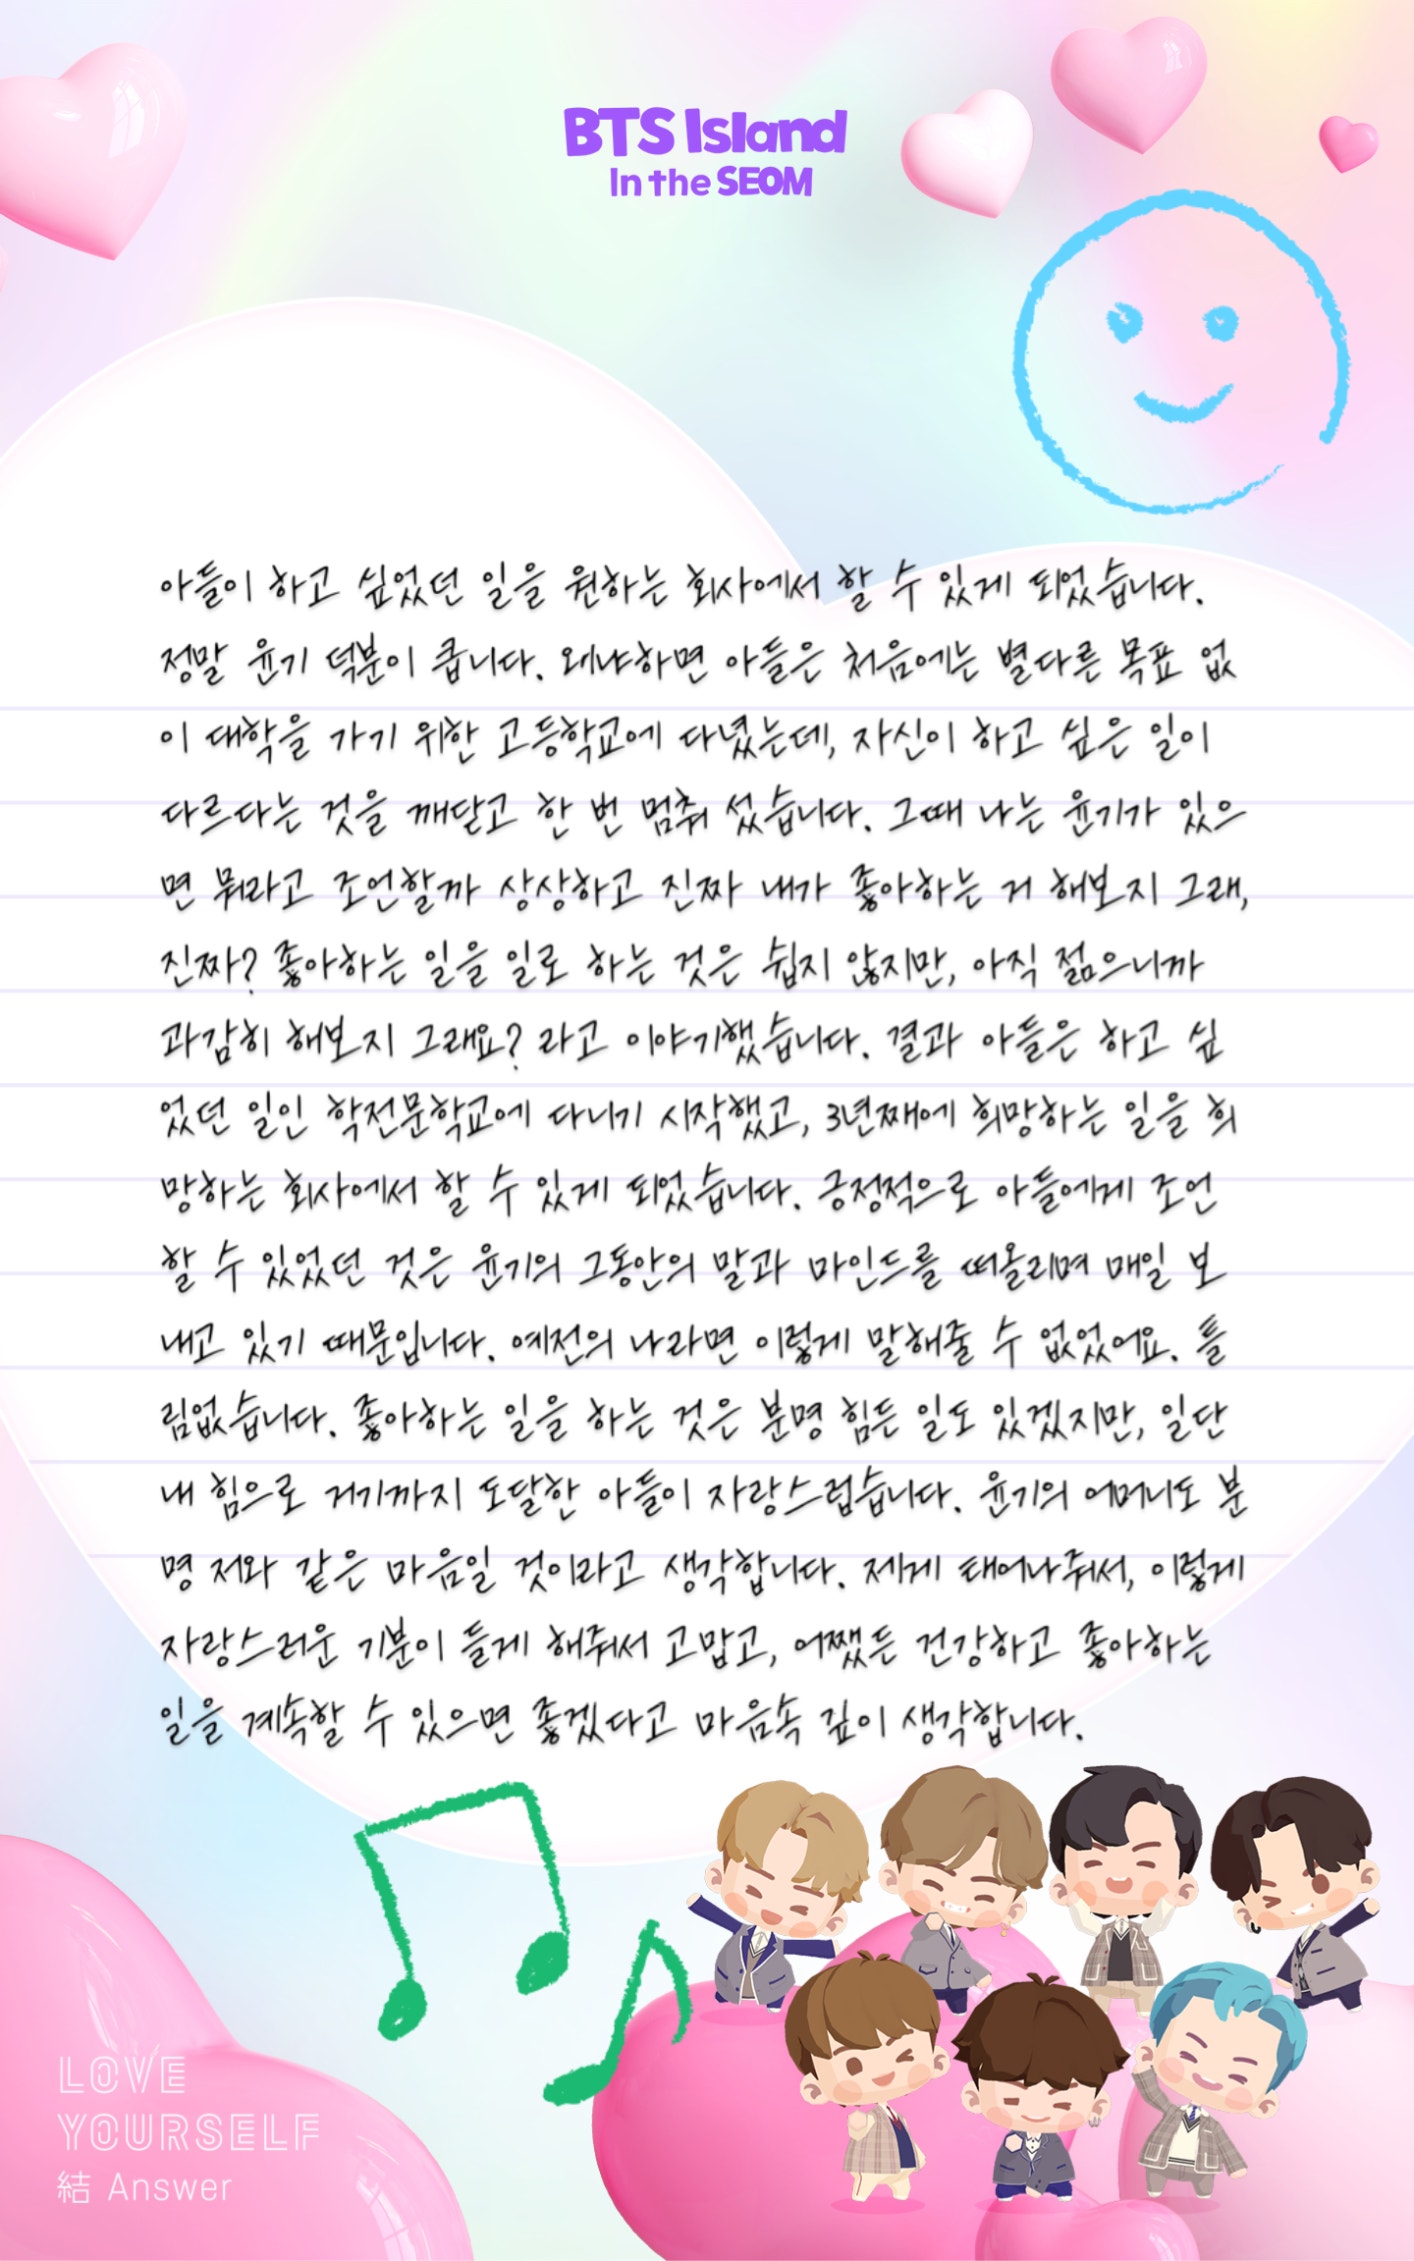 BTS Island
In the SEOM
아들이 하고 싶었던 일을 원하는 회사에서 할 수 있게 되었습니다.
정말 윤기 덕분이 큽니다. 왜냐하면 아들은 처음에는 별다른 목표 없
이 대학을 가기 위한 고등학교에 다녔는데, 자신이 하고 싶은 일이
다르다는 것을 깨닫고 한 번 멈춰 섰습니다. 그때 나는 윤기가 있으
면 뭐라고 조언할까 상상하고 진짜 내가 좋아하는 거 해보지 그래,
진짜? 좋아하는 일을 일로 하는 것은 쉽지 않지만, 아직 젊으니까
과감히 해보지 그래요? 라고 이야기했습니다. 결과 아들은 하고 싶
었던 일인 학전문학교에 다니기 시작했고, 3년째에 희망하는 일을 희
망하는 회사에서 할 수 있게 되었습니다. 긍정적으로 아들에게 조언
할 수 있었던 것은 윤기의 그동안의 말과 마인드를 떠올리며 매일 보
내고 있기 때문입니다. 예전의 나라면 이렇게 말해줄 수 없었어요. 틀
림없습니다. 좋아하는 일을 하는 것은 분명 힘든 일도 있겠지만, 일단
내 힘으로 거기까지 도달한 아들이 자랑스럽습니다. 윤기의 어머니도 분
명 저와 같은 마음일 것이라고 생각합니다. 제게 태어나줘서, 이렇게
자랑스러운 기분이 들게 해줘서 고맙고, 어쨌든 건강하고 좋아하는
일을 계속할 수 있으면 좋겠다고 마음속 깊이 생각합니다.
LOVE
YOURSELF
結 Answer